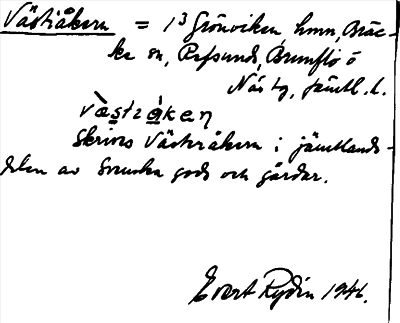 Västråkern = 1³ Grönviken, hmn, Bräc-
ke sn, Refsunds, Brunflo o
Näs tg, Jämtl. l.
Skrives Västeråkern i jämtlands-
delen av Svenska gods och gårdar.
Evert Rydin 1946.